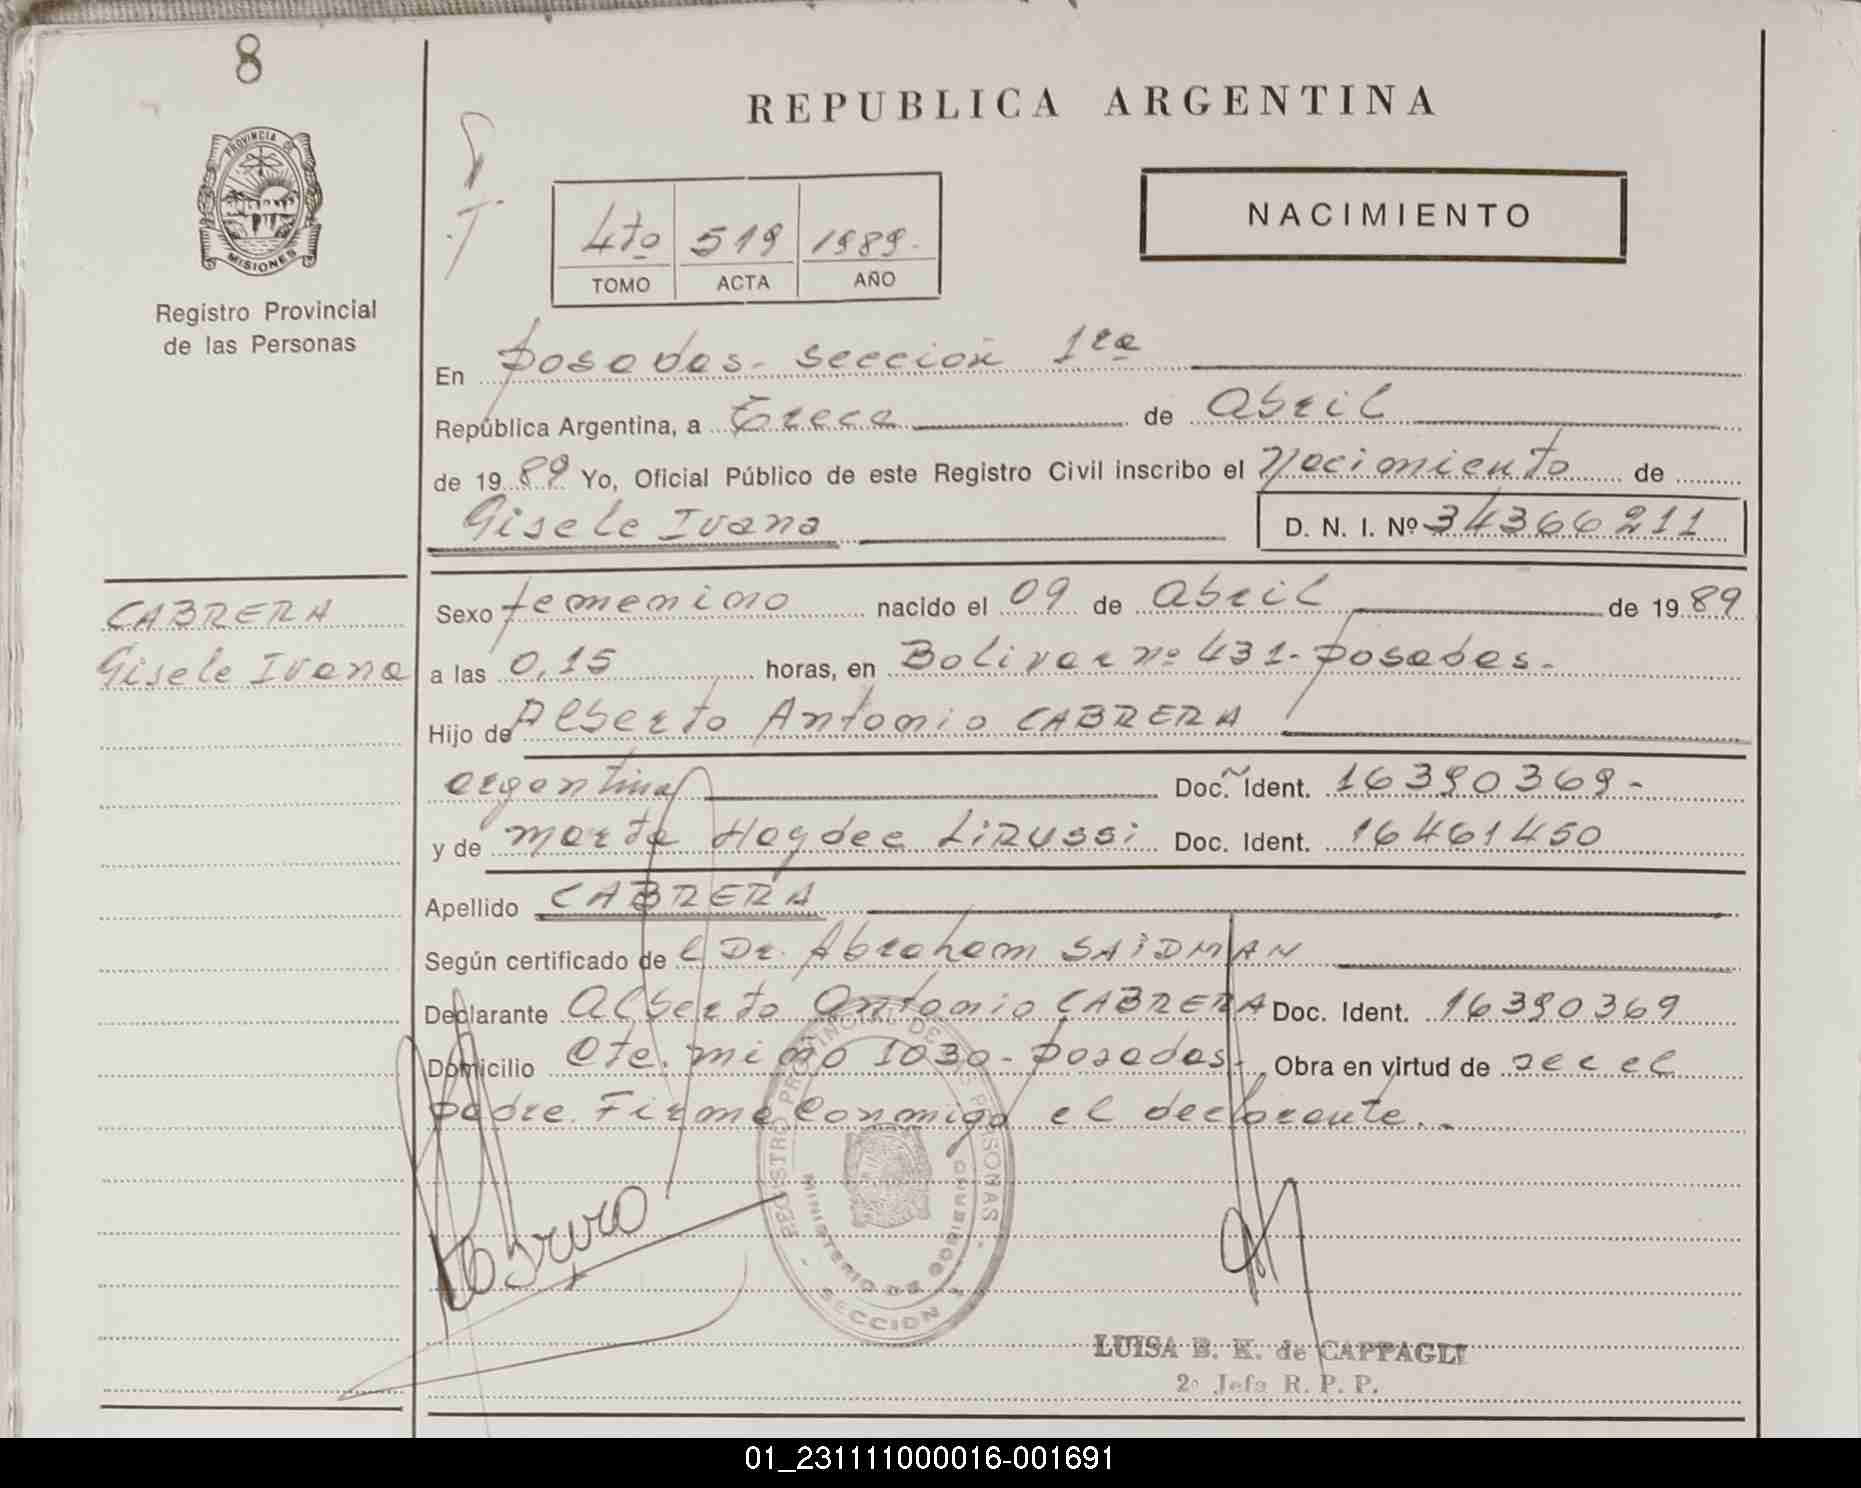 8
PROVINCIA DE
MISIONES
Registro Provincial
de las Personas
REPUBLICA ARGENTINA
NACIMIENTO
4to 519 1989.
TOMO ACTA AÑO
En Posadas - Sección 1ra
República Argentina, a Trece de Abril
de 1989 Yo, Oficial Público de este Registro Civil inscribo el Nacimiento de
Gisele Ivana D. N. I. Nº 34366211
CABRERA
Gisele Ivana
Sexo femenino nacido el 09 de Abril de 1989
a las 0,15 horas, en Bolivar nº 431 - Posadas.
Hijo de Alberto Antonio CABRERA
argentina Doc. Ident. 16390369 -
y de Marta Haydee LiRUSSi Doc. Ident. 16461450
Apellido CABRERA
Según certificado de l Dr. Abraham SAiDMAN
Declarante Alberto Antonio CABRERA Doc. Ident. 16390369
Domicilio Cte. Miño 1030 - Posadas. Obra en virtud de ser el
padre. Firma conmigo el declarante..
REGISTRO PROVINCIAL DE LAS PERSONAS
MINISTERIO DE GOBIERNO
SECCION 1
LUISA B. K. de CAPPAGLI
2º Jefa R. P. P.
01_231111000016-001691